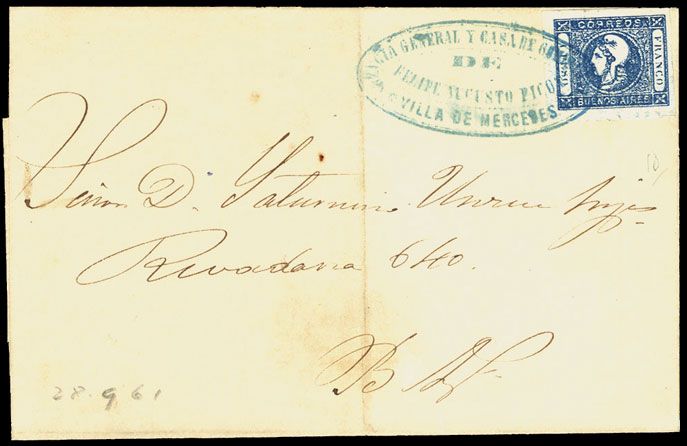 CORREOS
FRANCO
BUENOS AIRES
GENERAL Y CASA DE
DE
FELIPE AUGUSTO PICO
VILLA DE MERCEDES
Señor D. Saturnino Unzue hijo
Rivadavia 640.
B As
28.9 61